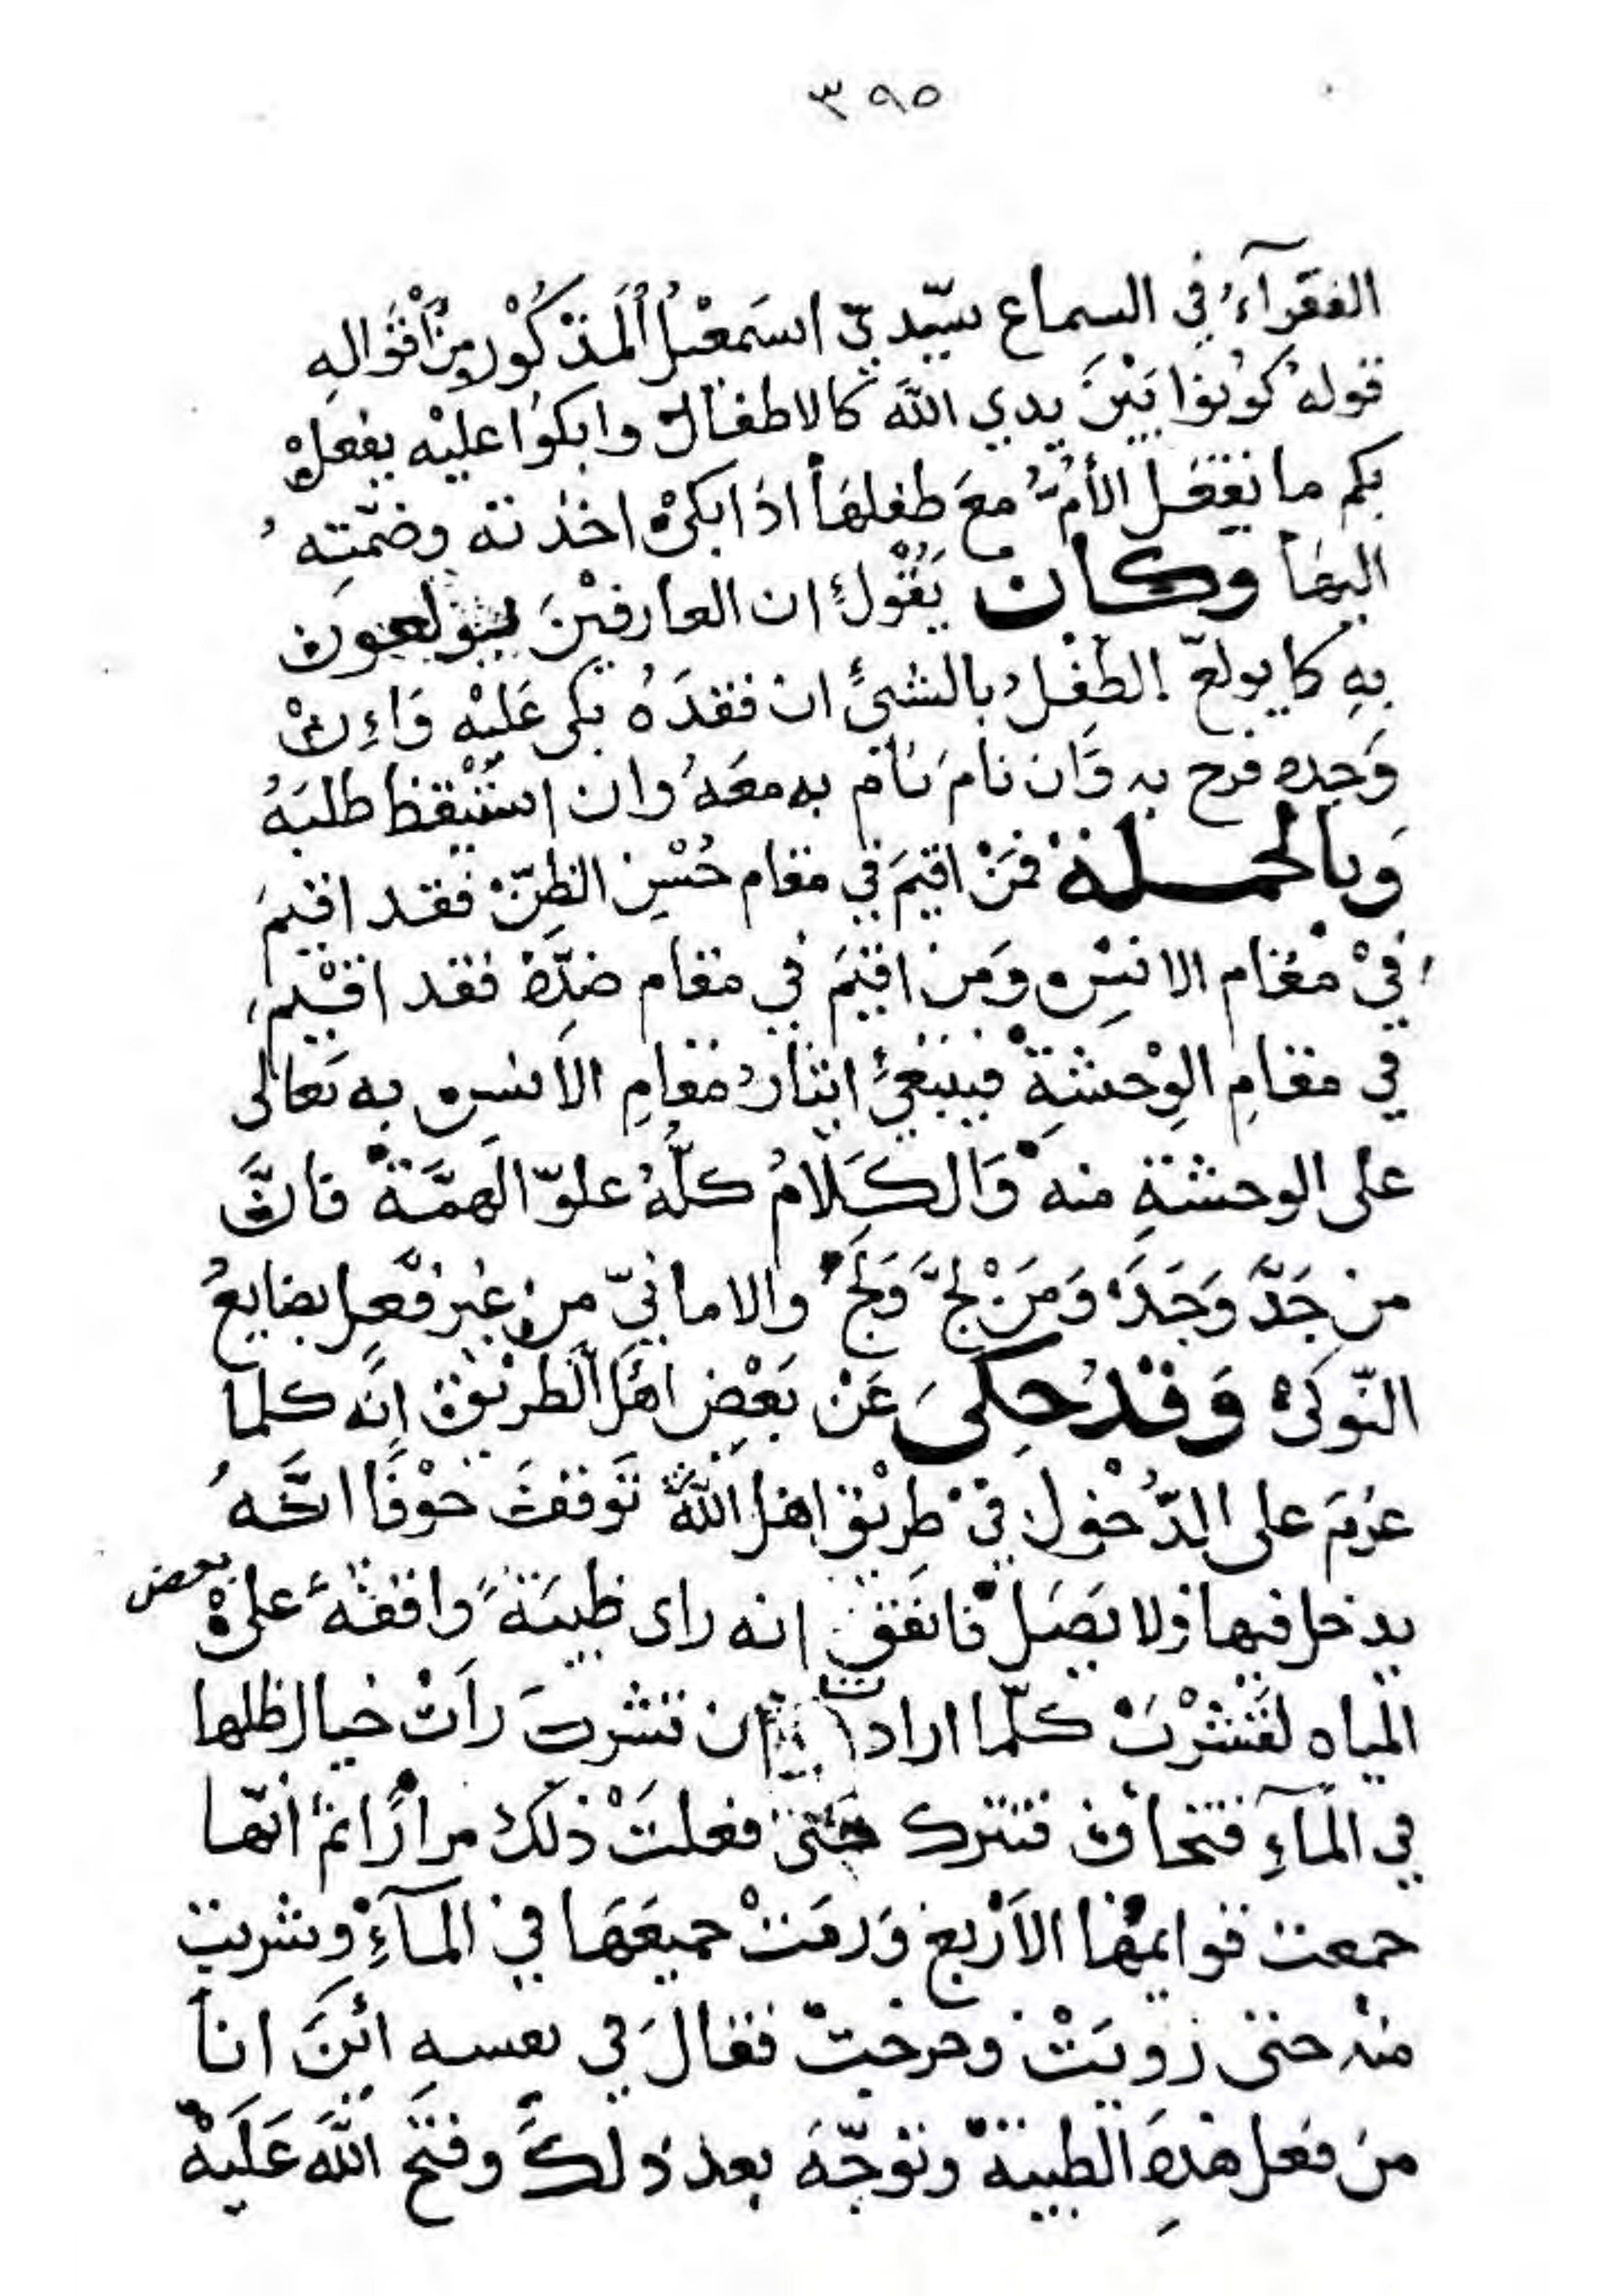 ٣٩٥
الفقرآءُ في السماع سيّديّ اسمعيلُ المذكُوْر ومن أقوالِهِ
قوله كونوا بَيْنَ يدي اللهَ كالاطفال وابكوا عليْه يفعلْ
بكم ما تفعَل الأمُّ معَ طفلهَا اذا بكىْ اخذته وضمّتِه
اليهَا وكان يَقُوْلُ ان العارفيْنَ يتولعون
بِهِ كما يولعّ الطفْلُ بالشئ ان فقدَهُ بكى عَليْه وَإنْ
وَجده فرح به وَان نامَ نام به معَهُ وان استيْقظ طلبَهُ
وَبالجملة فمَنْ اقيمَ في مقام حُسْنِ الظنّ فقد اقيمَ
فيْ مقام الانسِ ومَن اقيمَ في مقام ضدِّهْ فقد اقيْم
في مقامِ الوِحْشةِ فينبغيْ ايثارُ مقامِ الاَنس به تعالى
على الوحشةِ منه وَالكَلَامُ كلّهُ علوّ الهمَّة فانَّ
من جَدَّ وَجَدَ وَمَنْ لجَّ وَلجَ والامانيّ من غير فعل بضايعُ
النّوكىْ وَقدْ حكِىَ عَنْ بَعْضِ اهْل الطريْق إنَّه كلما
عزمَ على الدّخول فيْ طريْق اهل اللهْ تَوقفَ خوْفًا انَّهُ
يدخل فيها ولا يصَل فاتفق انه راى ظبيَةً واقفةً على بعض
المياه لتَشْرب كلّما ارادت ان تشربَ رأت خيال ظلها
في المآءِ فتخاف فتترك حتى فعلتْ ذلك مرارًا ثم أنّها
جمعت قوايمها الأرْبع وَرمَتْ جميعَهَا في المآءِ وشربت
منه حتى رويَتْ وخرجتْ فقالَ في نفسهِ ائنَ انا
من فعل هذِهِ الظبية وتوجّهَ بعد ذلكَ وفتحَ اللهَ عَلَيْه